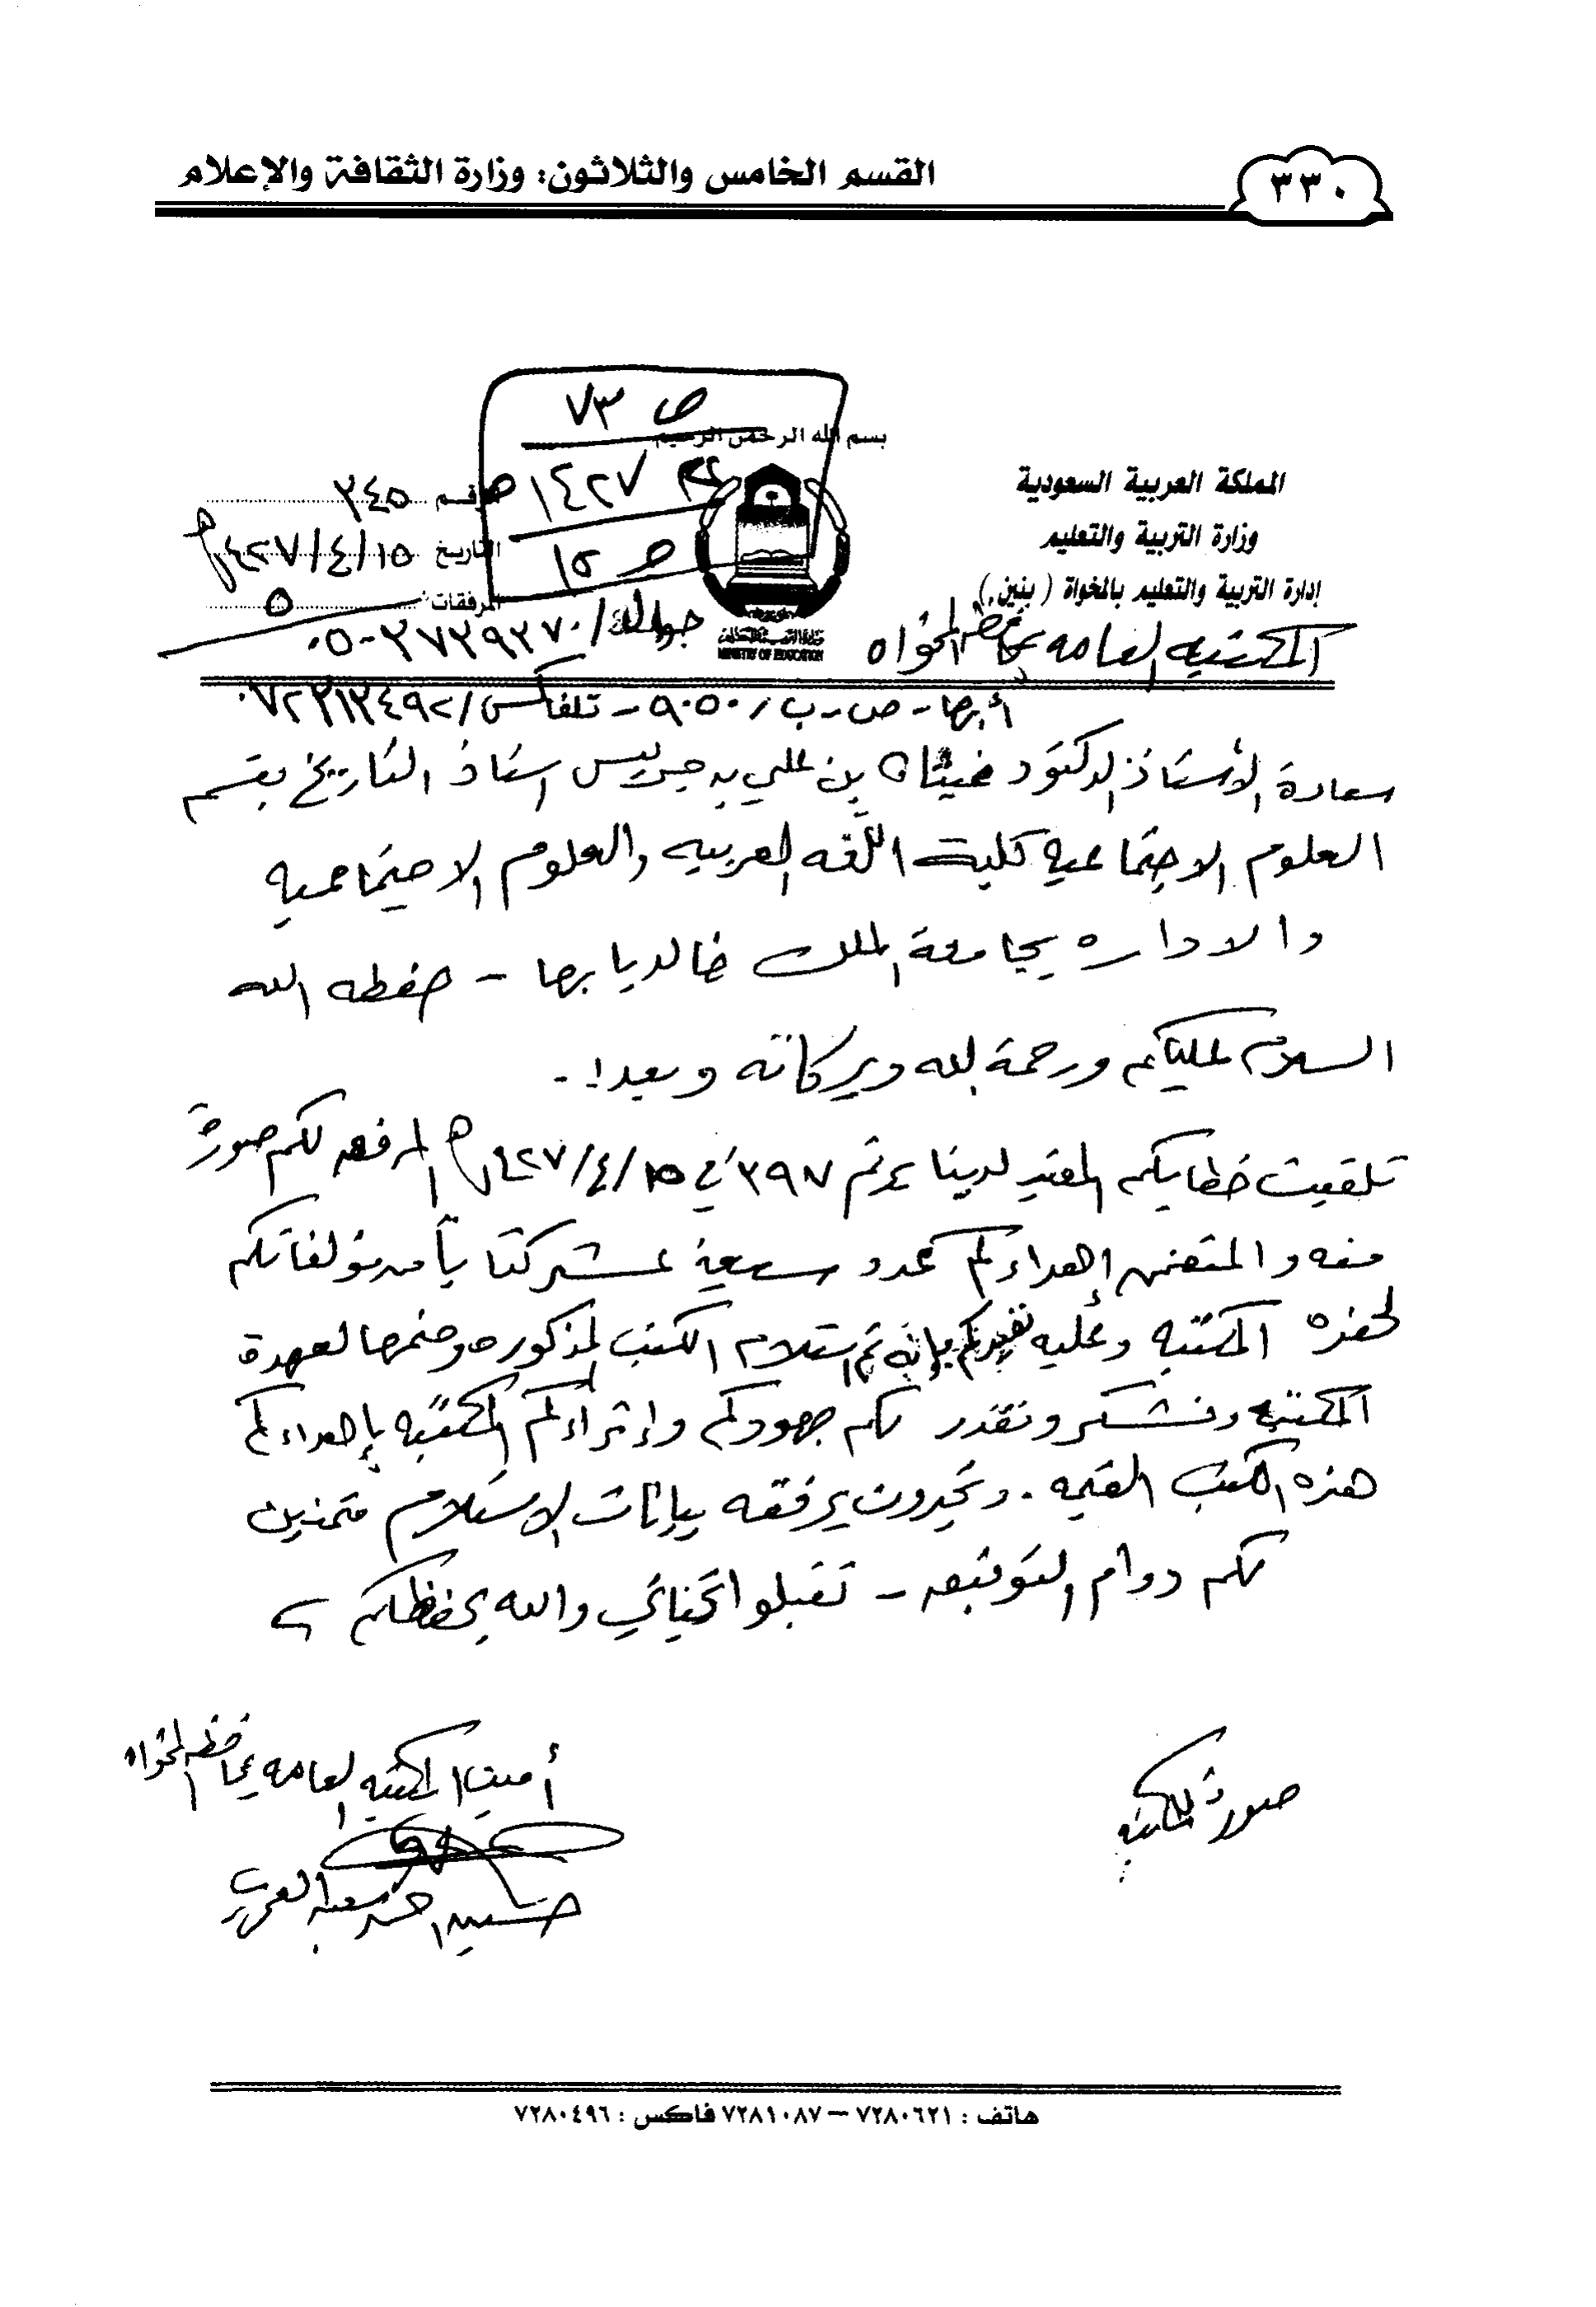 ٣٣٠
القسم الخامس والثلاثون: وزارة الثقافة والإعلام
ص ٧٣
١٤٢٧
ص ١٥
بسم الله الرحمن الرحيم
المملكة العربية السعودية
وزارة التربية والتعليم
إدارة التربية والتعليم بالمخواة (بنين)
المكتبه العامه بمحافظه المخواه
MINISTRY OF EDUCATION
الرقم ٣٤٥
التاريخ ١٥/٤/١٤٢٧هـ
المرفقات ٥
جوالك/٠٥٠٣٧٣٩٣٧٠
أبها - ص-ب/٩٠٥٠ - تلفاكس/٠٧٢٣١٣٤٩٢
سعادة الأستاذ الدكتور غيثان بن علي بن جريس استاذ التاريخ بقسم
العلوم الاجتماعيه كلية اللغه العربيه والعلوم الاجتماعيه
والاداره بجامعة الملك خالد بابها - حفظه الله
السلام عليكم ورحمة الله وبركاته وبعد:-
تلقيت خطابكم المقيد لدينا برقم ٣٩٧ في ١٥/٤/١٤٢٧هـ المرفق لكم صورة
منه والمتضمن إهداءكم عدد سبعة عشر كتاباً من مؤلفاتكم
لهذه المكتبه وعليه نفيدكم بإنه تم استلام الكتب المذكوره وضمها لعهدة
المكتبه ونشكر ونقدر لكم جهودكم وإثراءكم المكتبه بإهداءكم
هذه الكتب القيمه. وتجدون برفقه بيانات الاستلام متمنين
لكم دوام التوفيق - تقبلو اتحياتي والله يحفظكم
أمين المكتبه العامه بمحافظه المخواه
حسين احمد
صورة للمكتبه
هاتف : ٧٢٨٠٦٢١ – ٧٢٨١٠٨٧ فاكس : ٧٢٨٠٤٩٦